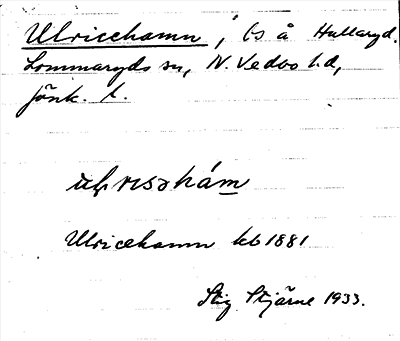 Ulricehamn, ls å Hullaryd.
Lommaryds sn, N. Vedbo hd,
Jönk. l.
Ulricehamn kb 1881
Stig Stjärne 1933.